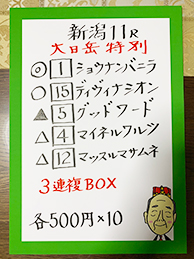 新潟11R
大日岳特別
◎ 1 ショウナンバニラ
○ 15 ディヴィナシオン
▲ 5 グッドワード
△ 4 マイネルフルツ
△ 12 マッスルマサムネ
3連複BOX
各500円×10